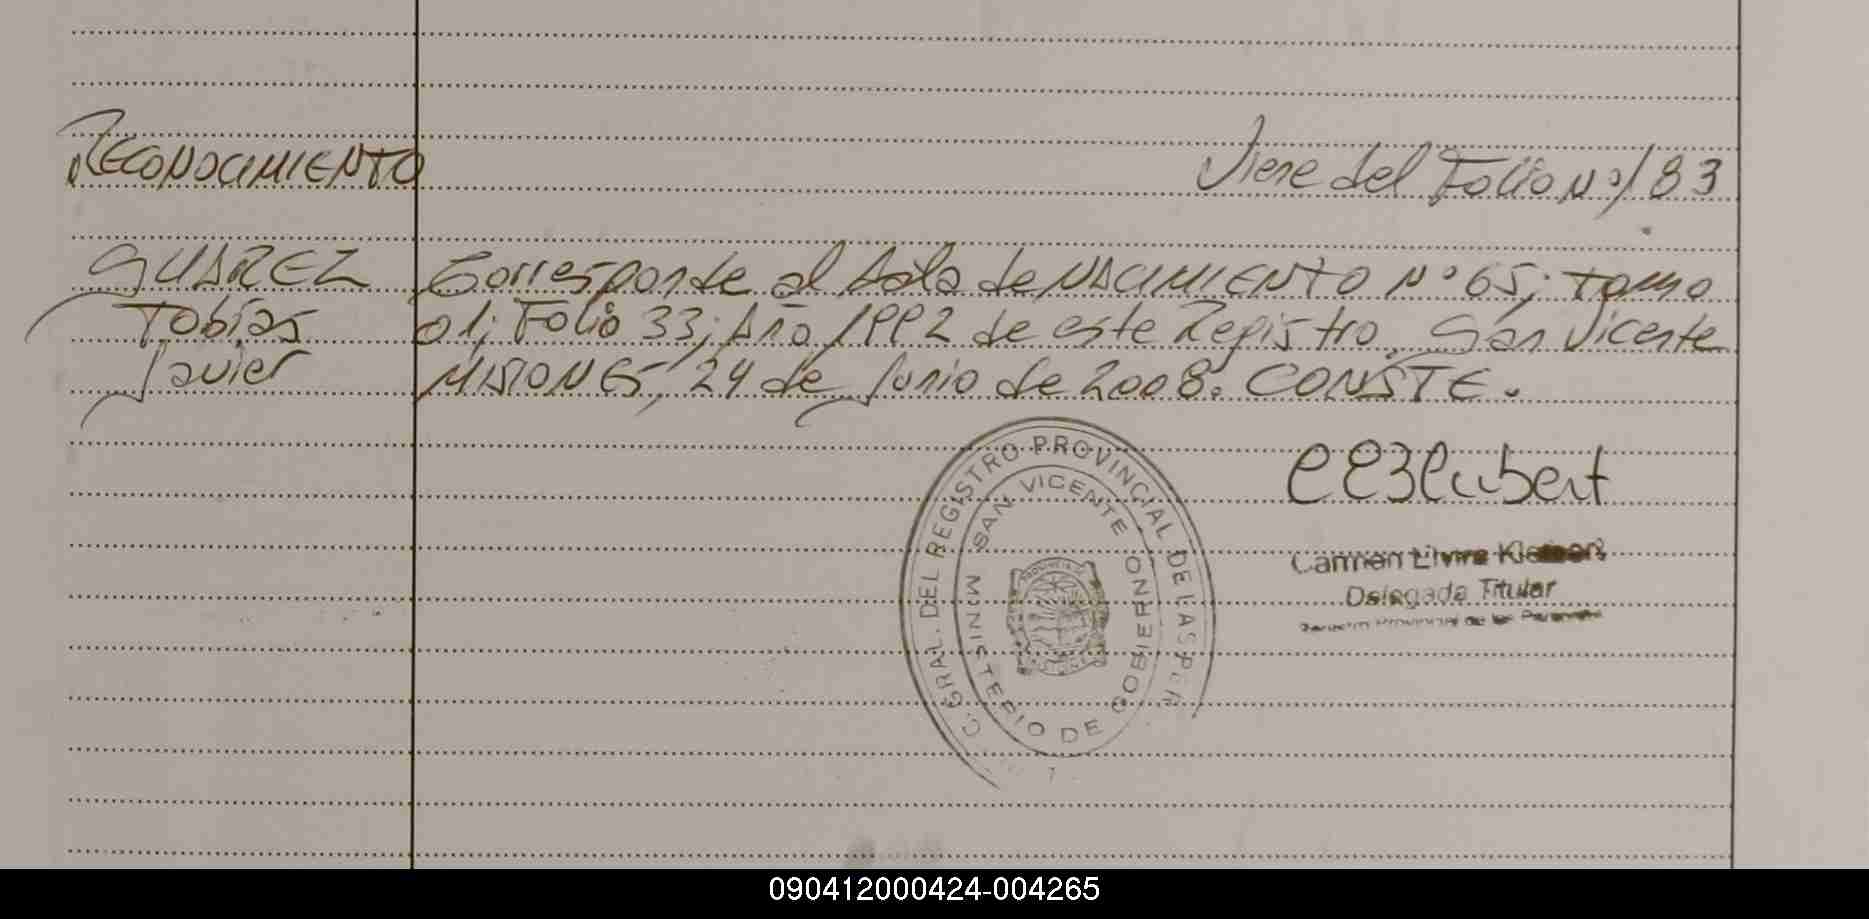 RECONOCIMIENTO
Viene del Folio Nº/83
SUAREZ Corresponde al Acta de NACIMIENTO Nº 65; Tomo
Tobías 01; Folio 33; Año 1992 de este Registro. San Vicente
Javier MISIONES, 24 de Junio de 2008. CONSTE.
C. GRAL. DEL REGISTRO PROVINCIAL DE LAS PER
SAN VICENTE
MINISTERIO DE GOBIERNO
PROVINCIA
MISIONES
Carmen
Delegada Titular
Provincial de las
090412000424-004265